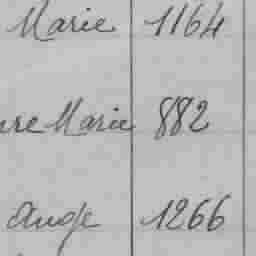 Marie 1164
Marie 882
Ange 1266